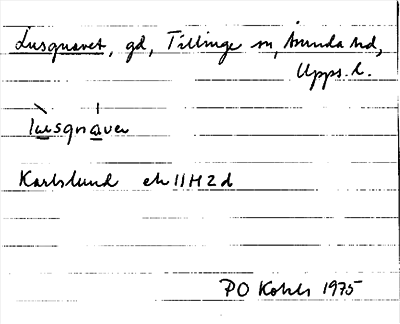 Lusgnavet, gd, Tillinge sn, Åsunda hd,
Upps. l.
lusgnaver
Karlslund ek 11H2d
PO Kohls 1975